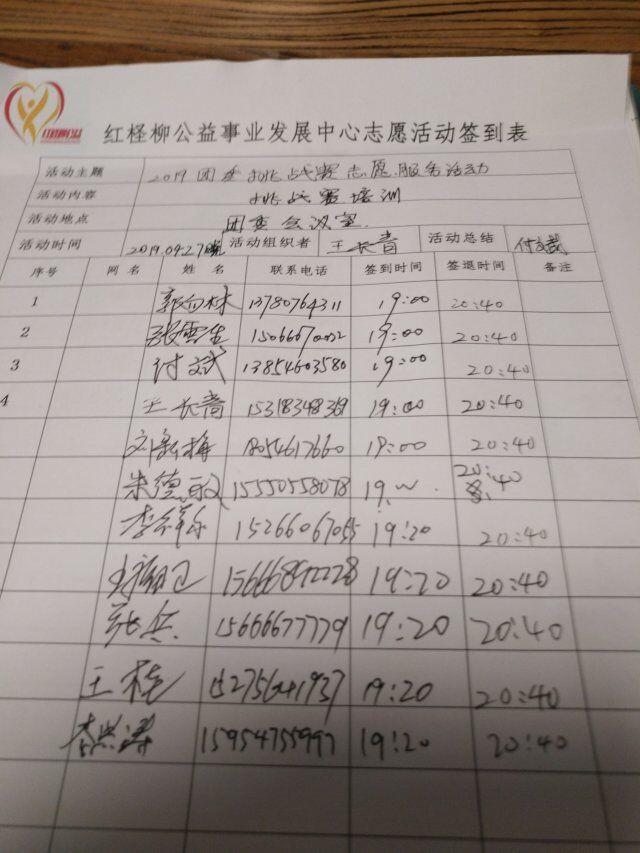 红柽柳公益事业发展中心志愿活动签到表
活动主题 2019团委挑战赛志愿服务活动
活动内容 挑战赛培训
活动地点 团委会议室
活动时间 2019.04.27晚 活动组织者 王长青 活动总结 付文斌
序号 网名 姓名 联系电话 签到时间 签退时间 备注
1 13780764311 19:00 20:40
2 19:00 20:40
3 付文斌 13854603580 19:00 20:40
4 王长青 15318348369 19:00 20:40
刘新梅 18054617660 19:00 20:40
朱德敏 15550558078 19: 20:40
15266067055 19:20 20:40
19:20 20:40
张兵 15666677779 19:20 20:40
王桂 19:20 20:40
15954755997 19:20 20:40